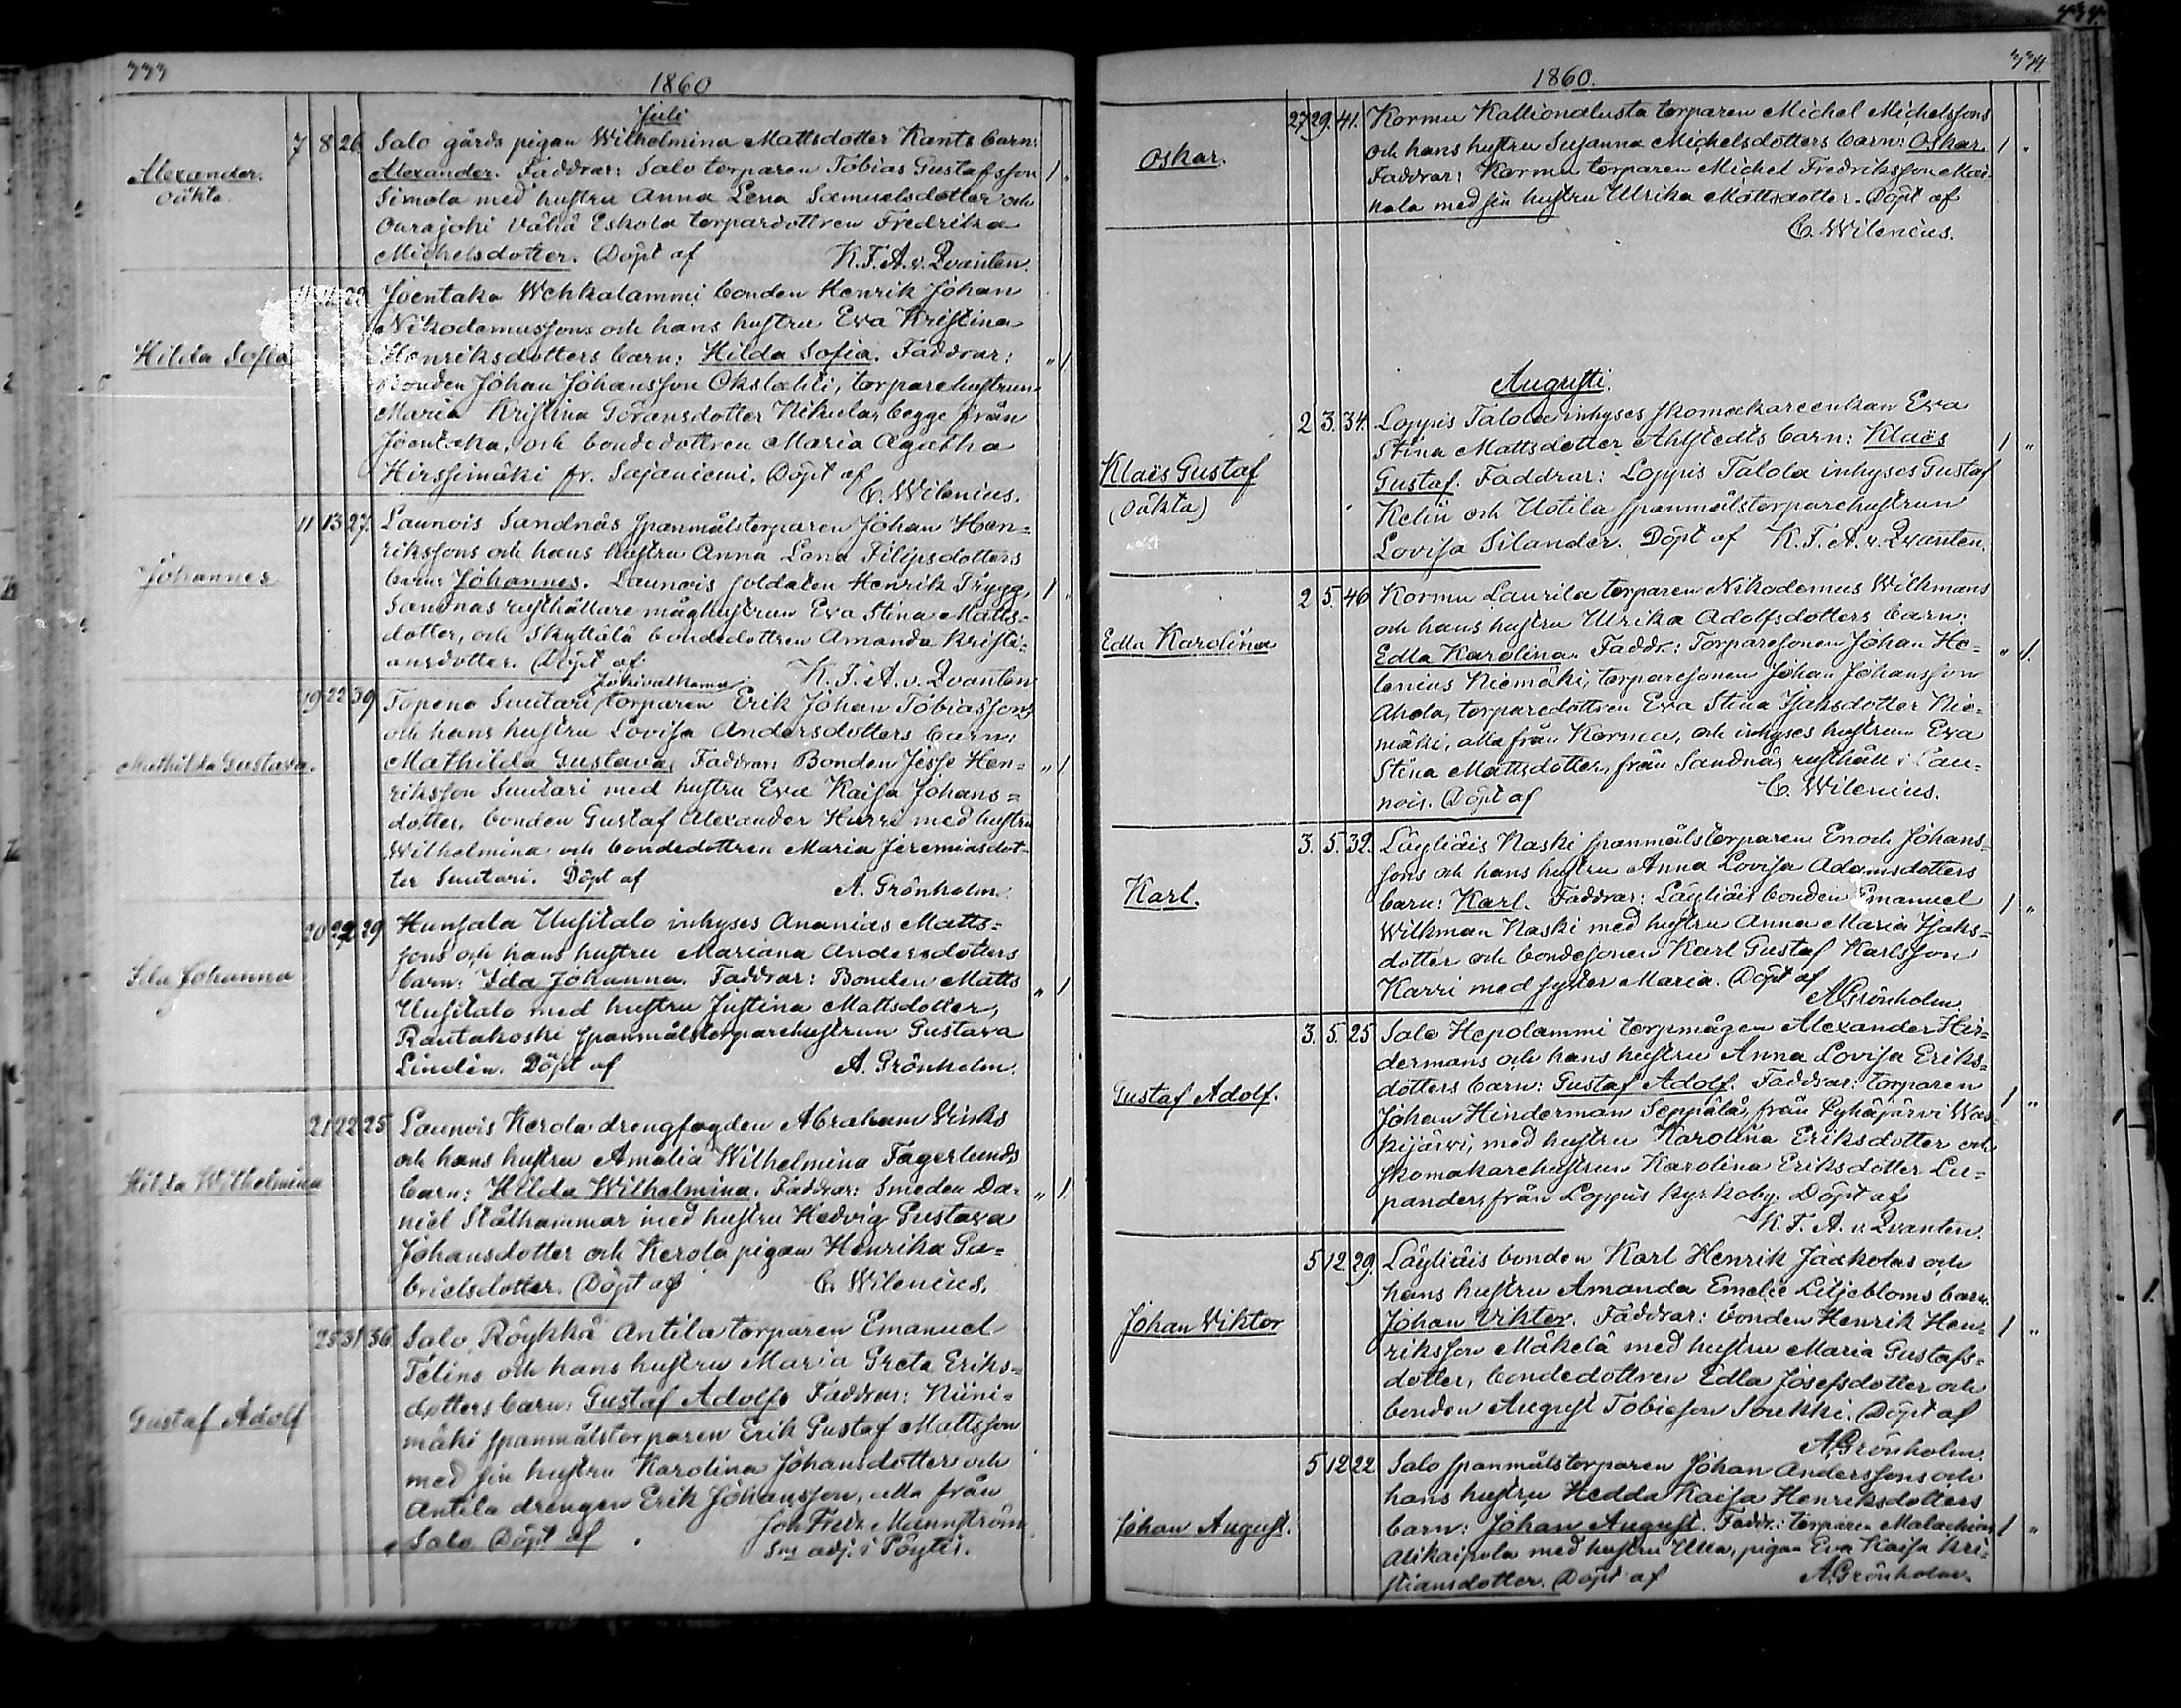 333
1860
Juli
Alexander.
oäkta.
7 8 26. Salo gårds pigan Wilhelmina Mattsdotter Kants barn:
Alexander. Faddrar: Salo torparen Tobias Gustafsson 1 "
Simola med hustru Anna Lena Samuelsdotter och
Ourajoki Vähä Eskola torpardottren Fredrika
Michelsdotter. Döpt af K. F. A. v. Qvanten.
Hilda Sofia
Joentaka Wehkalammi bonden Henrik Johan
Nikodemussons och hans hustru Eva Kristina
Henriksdotters barn: Hilda Sofia. Faddrar: " 1
Bonden Johan Johansson Okslahti, torparehustrun
Maria Kristina Göransdotter Nikula, begge från
Joentaka, och bondedottren Maria Agatha
Hirssimäki fr. Sajaniemi. Döpt af
C. Wilenius.
Johannes
11 13 27. Launois Sandnäs spanmålstorparen Johan Hen=
rikssons och hans hustru Anna Lena Filipsdotters
barn: Johannes. Launois soldaten Henrik Trygg, 1 "
Sandnäs rusthållare måghustrun Eva Stina Matts=
dotter, och Skyttälä bondedottren Amanda Kristi=
ansdotter. Döpt af K. F. A. v. Qvanten
Mathilda Gustava.
19 22 39 Topeno Suutari torparen Erik Johan Tobiassons
och hans hustru Lovisa Andersdotters barn:
Mathilda Gustava, Faddrar: Bonden Jesse Hen= " 1
riksson Suutari med hustru Eva Kaisa Johans=
dotter, bonden Gustaf Alexander Hurri med hustru
Wilhelmina och bondedottren Maria Jeremiasdot=
ter Suutari. Döpt af A. Grönholm.
Ida Johanna
20 22 29 Hunsala Uusitalo inhyses Ananias Matts=
sons och hans hustru Mariana Andersdotters
barn: Ida Johanna. Faddrar: Bonden Matts " 1
Uusitalo med hustru Justina Mattsdotter,
Rautakoski spanmålstorparehustrun Gustava
Lindin. Döpt af A. Grönholm.
Hilda Wilhelmina
21 22 25 Launois Kerola drengfogden Abraham
och hans hustru Amalia Wilhelmina Fagerlunds
barn: Hilda Wilhelmina. Faddrar: Smeden Da= " 1.
niel Stålhammar med hustru Hedvig Gustava
Johansdotter och Kerola pigan Henrika Ga=
brielsdotter. Döpt af C. Wilenius.
Gustaf Adolf
25 31 36 Salo Röykkä Antila torparen Emanuel
Telins och hans hustru Maria Greta Eriks=
dotters barn: Gustaf Adolf. Faddrar: Niini=
mäki spanmålstorparen Erik Gustaf Mattsson
med sin hustru Karolina Johansdotter och
Antila drengen Erik Johansson, alla från
Salo Döpt af Joh Fredr. Mannström
adj. i Pöytis.
334.
1860.
Oskar.
27 29. 41. Kormu Kallionalusta torparen Michel Michelssons
och hans hustru Susanna Michelsdotters barn: Oskar. 1 "
Faddrar: Kormu torparen Michel Fredriksson Mai-
nala med sin hustru Ulrika Mattsdotter. Döpt af
C. Wilenius.
Augusti.
Klaës Gustaf
(oäkta)
2 3. 34. Loppis Talola inhyses skomakareenkan Eva
Stina Mattsdotter Ahlstedts barn: Klaës 1 "
Gustaf. Faddrar: Loppis Talola inhyses Gustaf
Kelin och Uotila spanmålstorparehustrun
Lovisa Silander. Döpt af K. F. A. v. Qvanten.
Edla Karolina
2 5. 46 Kormu Laurila torparen Nikodemus Wilkmans
och hans hustru Ulrika Adolfsdotters barn:
Edla Karolina. Faddr.: Torparesonen Johan He= " 1.
lenius Niemäki, torparesonen Johan Johansson
Ahola, torparedottren Eva Stina Isaksdotter Nie=
mäki, alla från Kormu, och inhyses hustrun Eva
Stina Mattsdotter, från Sandnäs rusthåll i Lau=
nois. Döpt af C. Wilenius.
Karl.
3. 5. 32. Läyliäis Kaski spanmålstorparen Enoch Johans=
sons och hans hustru Anna Lovisa Adamsdotters
barn: Karl. Faddrar: Läyliäis bonden Emanuel 1 "
Wilkman Kaski med hustru Anna Maria Isaks=
dotter och bondesonen Karl Gustaf Karlsson
Karri med syster Maria. Döpt af
A. Grönholm
Gustaf Adolf.
3. 5. 25 Salo Hepolammi torpmågen Alexander Hin=
dermans och hans hustru Anna Lovisa Eriks=
dotters barn: Gustaf Adolf. Faddrar: torparen 1 "
Johan Hinderman Seppälä, från Pyhäjärvi Was=
kijärvi, med hustru Karolina Eriksdotter och
skomakarehustrun Karolina Eriksdotter Lu=
pander, från Loppis kyrkoby. Döpt af
K. F. A. v. Qvanten.
Johan Viktor
5 12 29. Läyliäis bonden Karl Henrik Jaakolas och
hans hustru Amanda Emelie Liljebloms barn
Johan Viktor. Faddrar: bonden Henrik Hen= 1 "
riksson Mäkelä med hustru Maria Gustafs=
dotter, bondedottren Edla Josefsdotter och
bonden August Tobieson Soukki. Döpt af
A. Grönholm.
Johan August.
5 12 22 Salo spanmålstorparen Johan Anderssons och
hans hustru Hedda Kaisa Henriksdotters
barn: Johan August. Faddr.: torparen Malachias 1 "
Alikaipola med hustru Ulla, pigan Eva Kaisa Kri=
stiansdotter. Döpt af A. Grönholm.